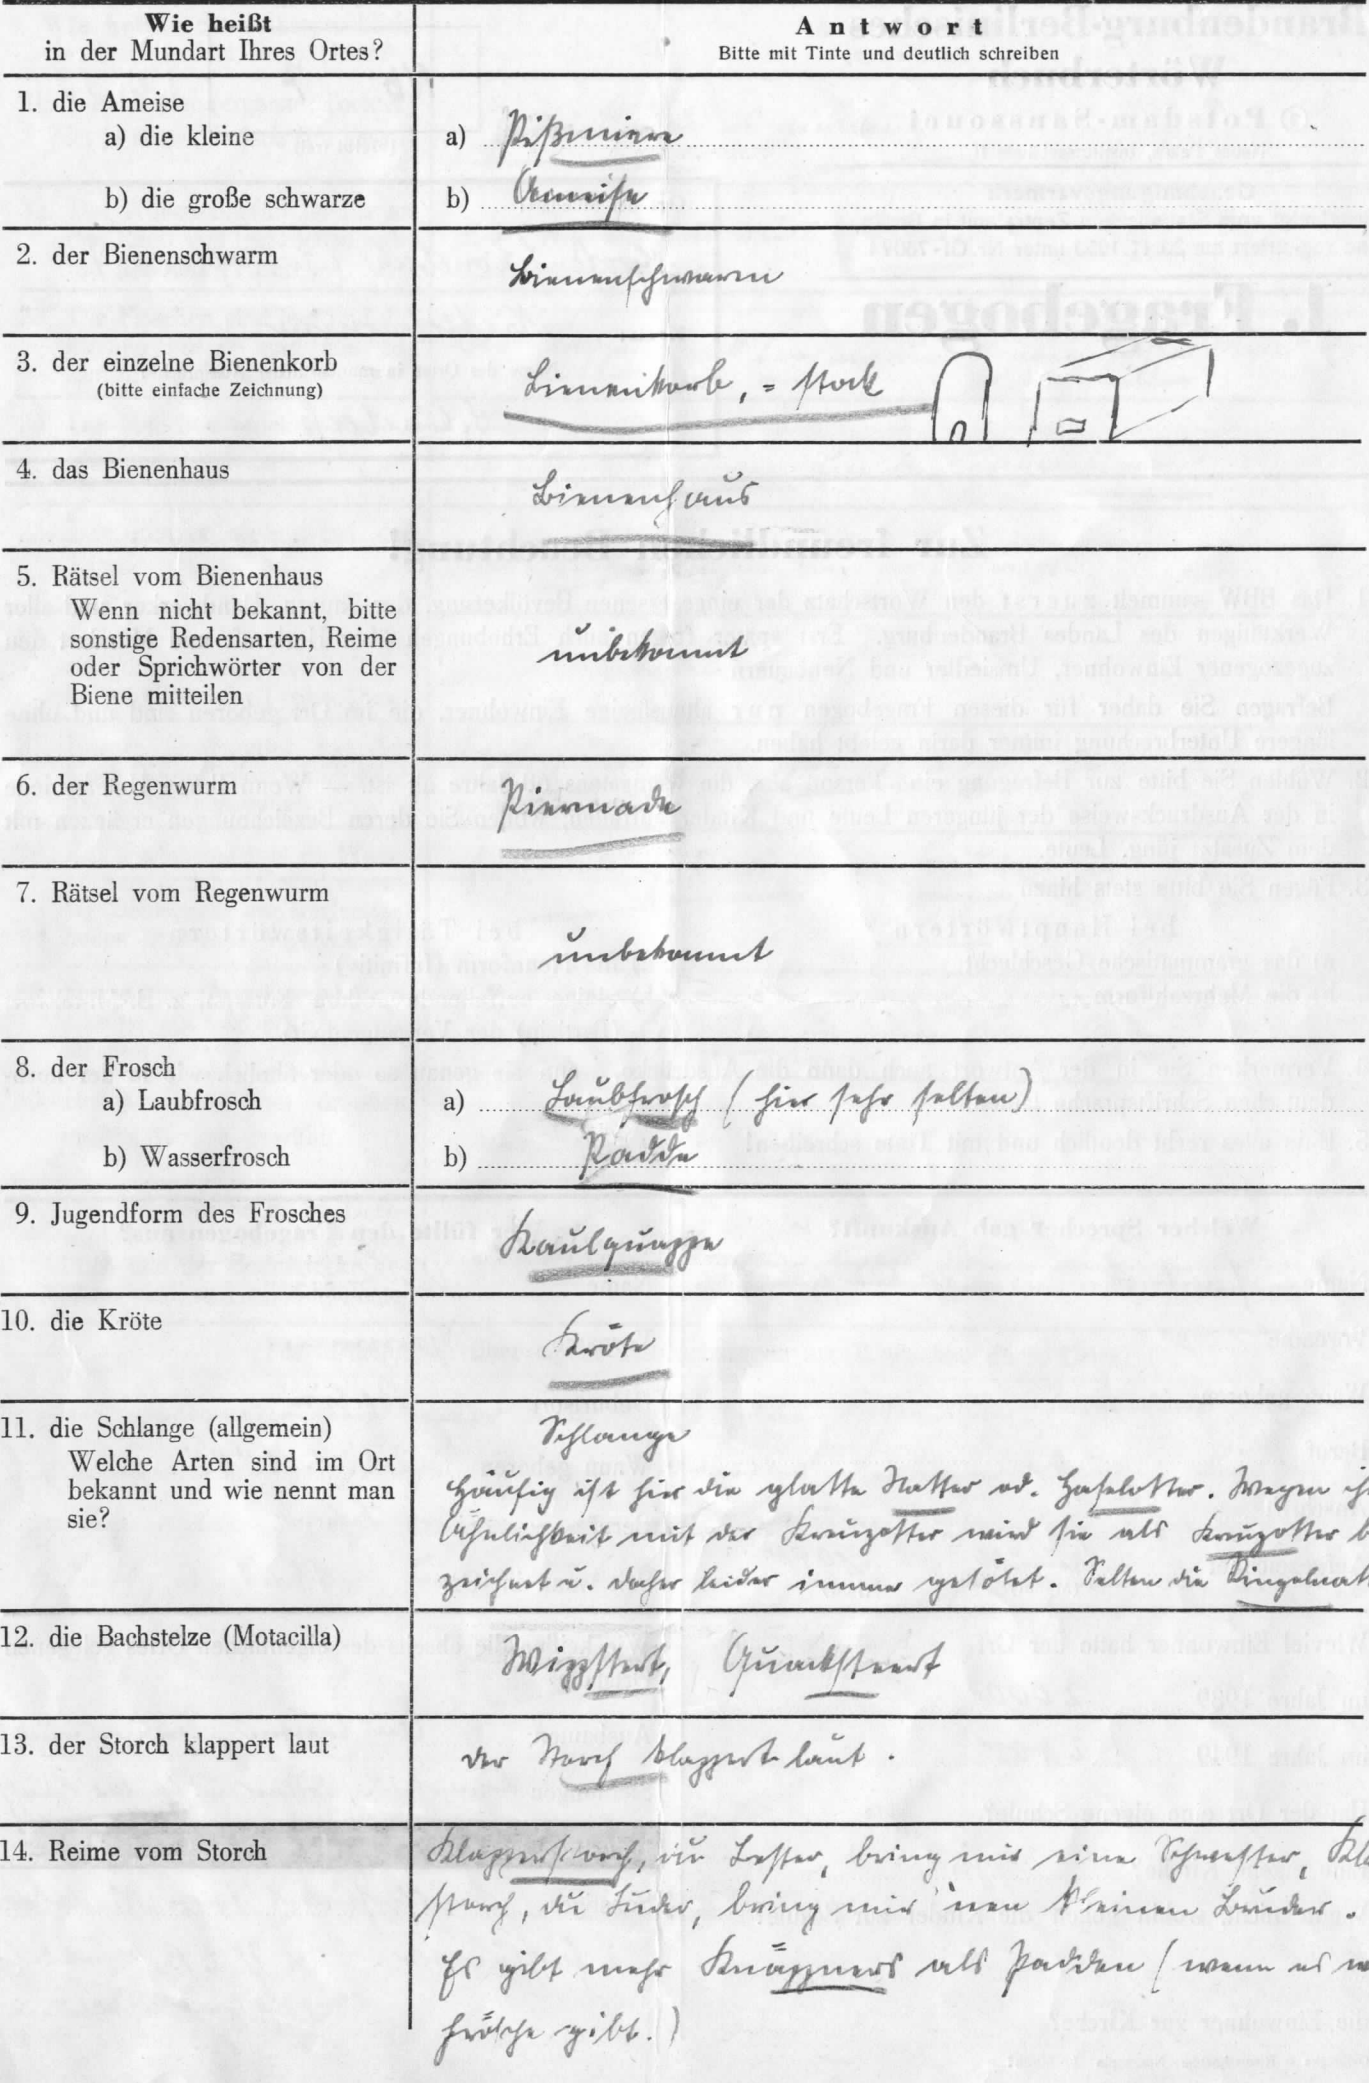 Wie heißt
in der Mundart Ihres Ortes?
Antwort
Bitte mit Tinte und deutlich schreiben
1. die Ameise
a) die kleine
a) Pißmiere
b) die große schwarze
b) Ameise
2. der Bienenschwarm
Bienenschwarm
3. der einzelne Bienenkorb
(bitte einfache Zeichnung)
Bienenkorb, = stock
4. das Bienenhaus
Bienenhaus
5. Rätsel vom Bienenhaus
Wenn nicht bekannt, bitte
sonstige Redensarten, Reime
oder Sprichwörter von der
Biene mitteilen
unbekannt
6. der Regenwurm
Piermade
7. Rätsel vom Regenwurm
unbekannt
8. der Frosch
a) Laubfrosch
a) Laubfrosch (hier sehr selten)
b) Wasserfrosch
b) Padde
9. Jugendform des Frosches
Kaulquappe
10. die Kröte
Kröte
11. die Schlange (allgemein)
Welche Arten sind im Ort
bekannt und wie nennt man
sie?
Schlange
Häufig ist hier die glatte Natter od. Haselotter. Wegen ih
Ähnlichkeit mit der Kreuzotter wird sie als Kreuzotter b
zeichnet u. daher leider immer getötet. Selten die Ringelnat
12. die Bachstelze (Motacilla)
Wippstert, Quacksteert
13. der Storch klappert laut
der Storch klappert laut.
14. Reime vom Storch
Klapperstorch, du Bester, bring mir eine Schwester, Kla
storch, du Luder, bring mir 'nen kleinen Bruder.
Es gibt mehr Knäppners als Padden (wenn es w
Frösche gibt.)